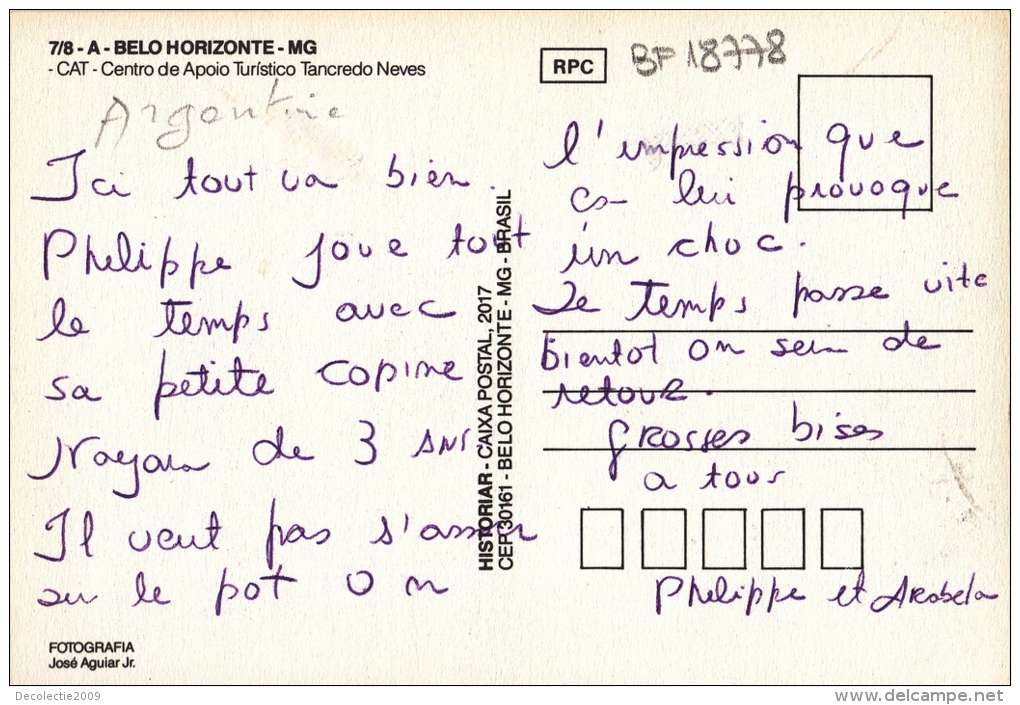 7/8 - A - BELO HORIZONTE - MG
- CAT - Centro de Apoio Turístico Tancredo Neves
Argentine
Ici tout va bien.
Philippe joue tout
le temps avec
sa petite copine
Nayara de 3 ANS
Il veut pas s'assoir
su le pot on
FOTOGRAFIA
José Aguiar Jr.
HISTORIAR - CAIXA POSTAL, 2017
CEP 30161 - BELO HORIZONTE - MG - BRASIL
RPC
BF 18778
l'impression que
ca lui provoque
un choc.
Le temps passe vite
bientot on sera de
retour.
Grosses bises
a tous
Philippe et Arabela
Decolectie2009
www.delcampe.net